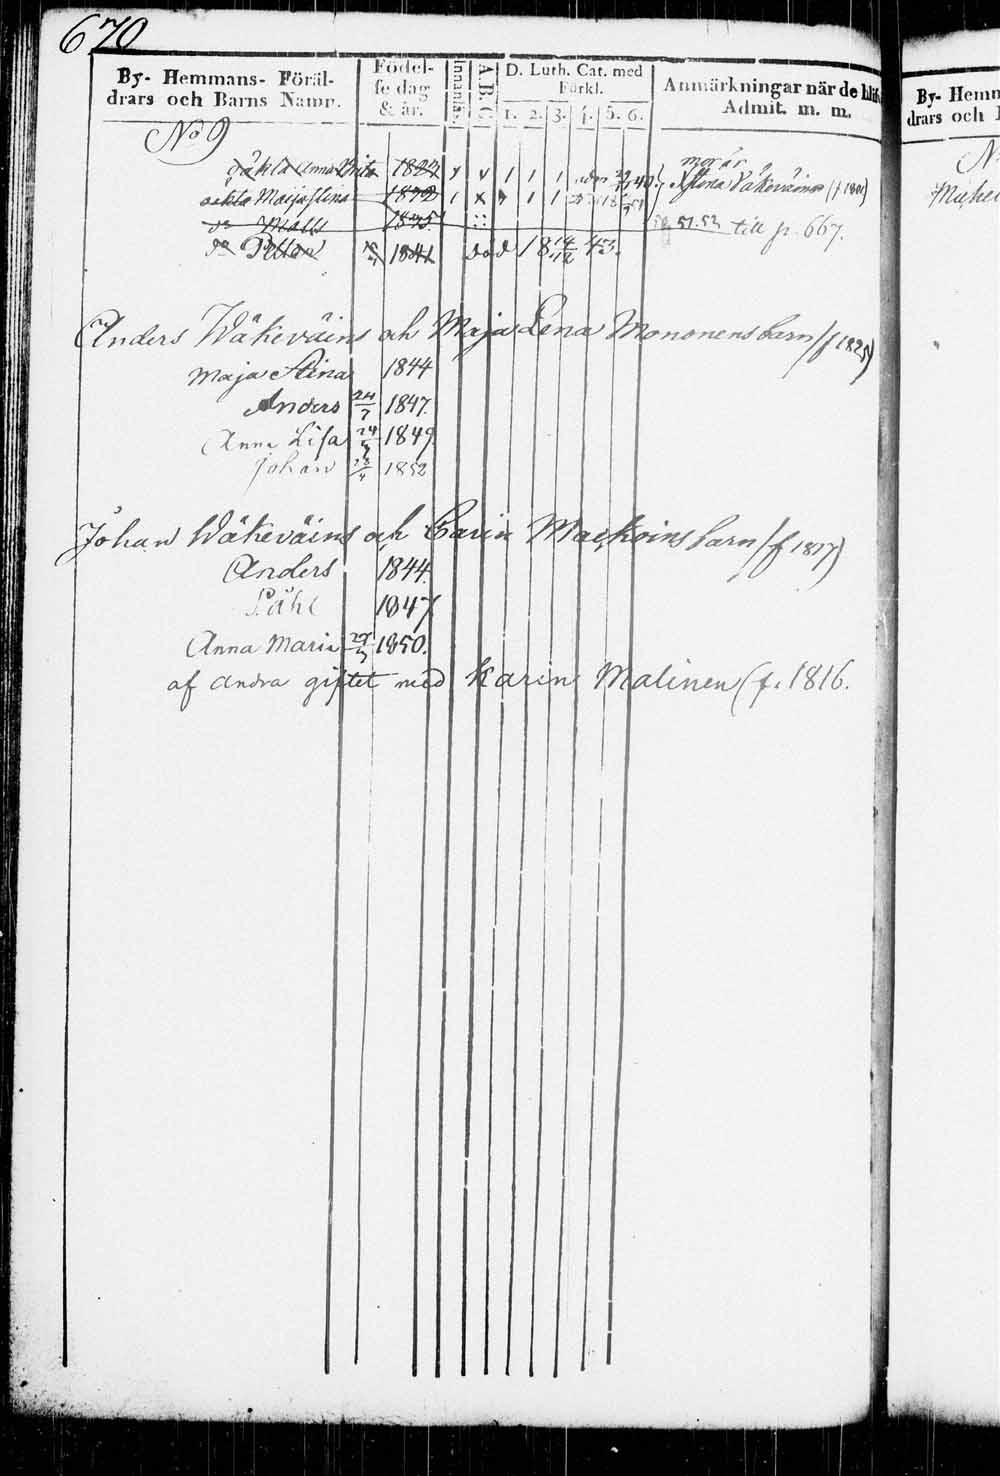 670
By- Hemmans- Föräl-
drars och Barns Namn.
Födel-
se dag
& år.
Innanläs.
A. B. C.
D. Luth. Cat. med
Förkl.
1. 2. 3. 4. 5. 6.
Anmärkningar när de blif
Admit. m. m.
No 9
oäkta Anna Brita 1827 mor är
oäkta Maija Stina 1832 Stina Wäkeväinen (f 1800)
do Matts 1835 51.52 till p. 667.
do Petter 1841 död 18 14/12 43.
Anders Wäkeväins och Maja Lena Mononens barn (f 1825)
Maja Stina 1844
Anders 24/7 1847.
Anna Lisa 24 1849
Johan 28/4 1852
Johan Wäkeväins och Carin Matkoins barn (f 1817)
Anders 1844.
Påhl 1847
Anna Maria 1850.
af andra giftet med Karin Malinen (f. 1816.
By- Hemm
drars och
N
Michel